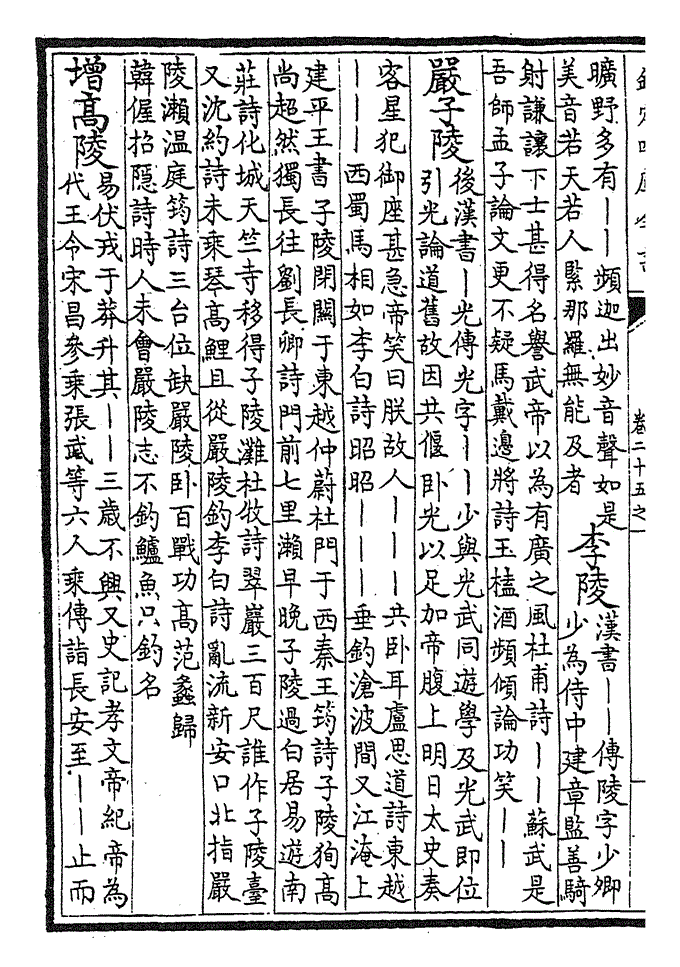 卷二十五之一
曠野多有——頻迦出妙音聲如是
美音若天若人緊那羅無能及者
李陵
漢書——傳陵字少卿
少為侍中建章監善騎
射謙讓下士甚得名譽武帝以為有廣之風杜甫詩——蘇武是
吾師孟子論文更不疑馬戴邊將詩玉榼酒頻傾論功笑——
嚴子陵
後漢書—光傳光字——少與光武同遊學及光武即位
引光論道舊故因共偃卧光以足加帝腹上明日太史奏
客星犯御座甚急帝笑曰朕故人———共卧耳盧思道詩東越
———西蜀馬相如李白詩昭昭———垂釣滄波間又江淹上
建平王書子陵閉關于東越仲蔚杜門于西秦王筠詩子陵狥高
尚超然獨長往劉長卿詩門前七里瀨早晚子陵過白居易遊南
莊詩化城天竺寺移得子陵灘杜牧詩翠巖三百尺誰作子陵臺
又沈約詩未乘琴高鯉且從嚴陵釣李白詩亂流新安口北指嚴
陵瀨温庭筠詩三台位缺嚴陵卧百戰功高范蠡歸
韓偓招隱詩時人未會嚴陵志不釣鱸魚只釣名
增高陵
易伏戎于莽升其——三歲不興又史記孝文帝紀帝為
代王令宋昌參乘張武等六人乘傳詣長安至——止而